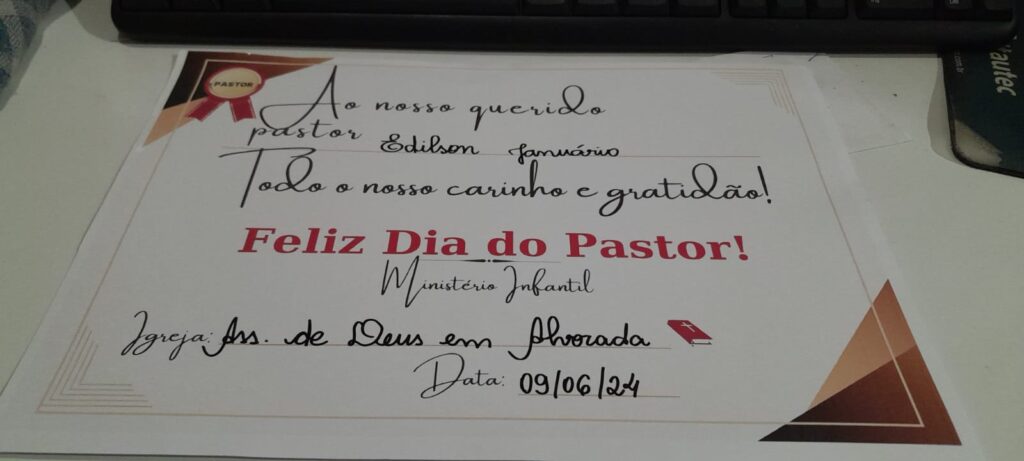 PASTOR
Ao nosso querido
pastor Edilson Januário
Todo o nosso carinho e gratidão!
Feliz Dia do Pastor!
Ministério Infantil
Igreja: Ass. de Deus em Alvorada
Data: 09/06/24